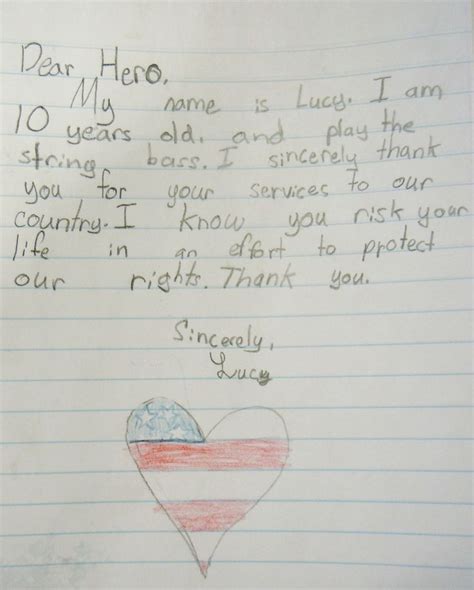 Dear Hero,
My name is Lucy. I am
10 years old. and play the
string bass. I sincerely thank
you for your services to our
country. I know you risk your
life in an effort to protect
our rights. Thank you.
Sincerely,
Lucy